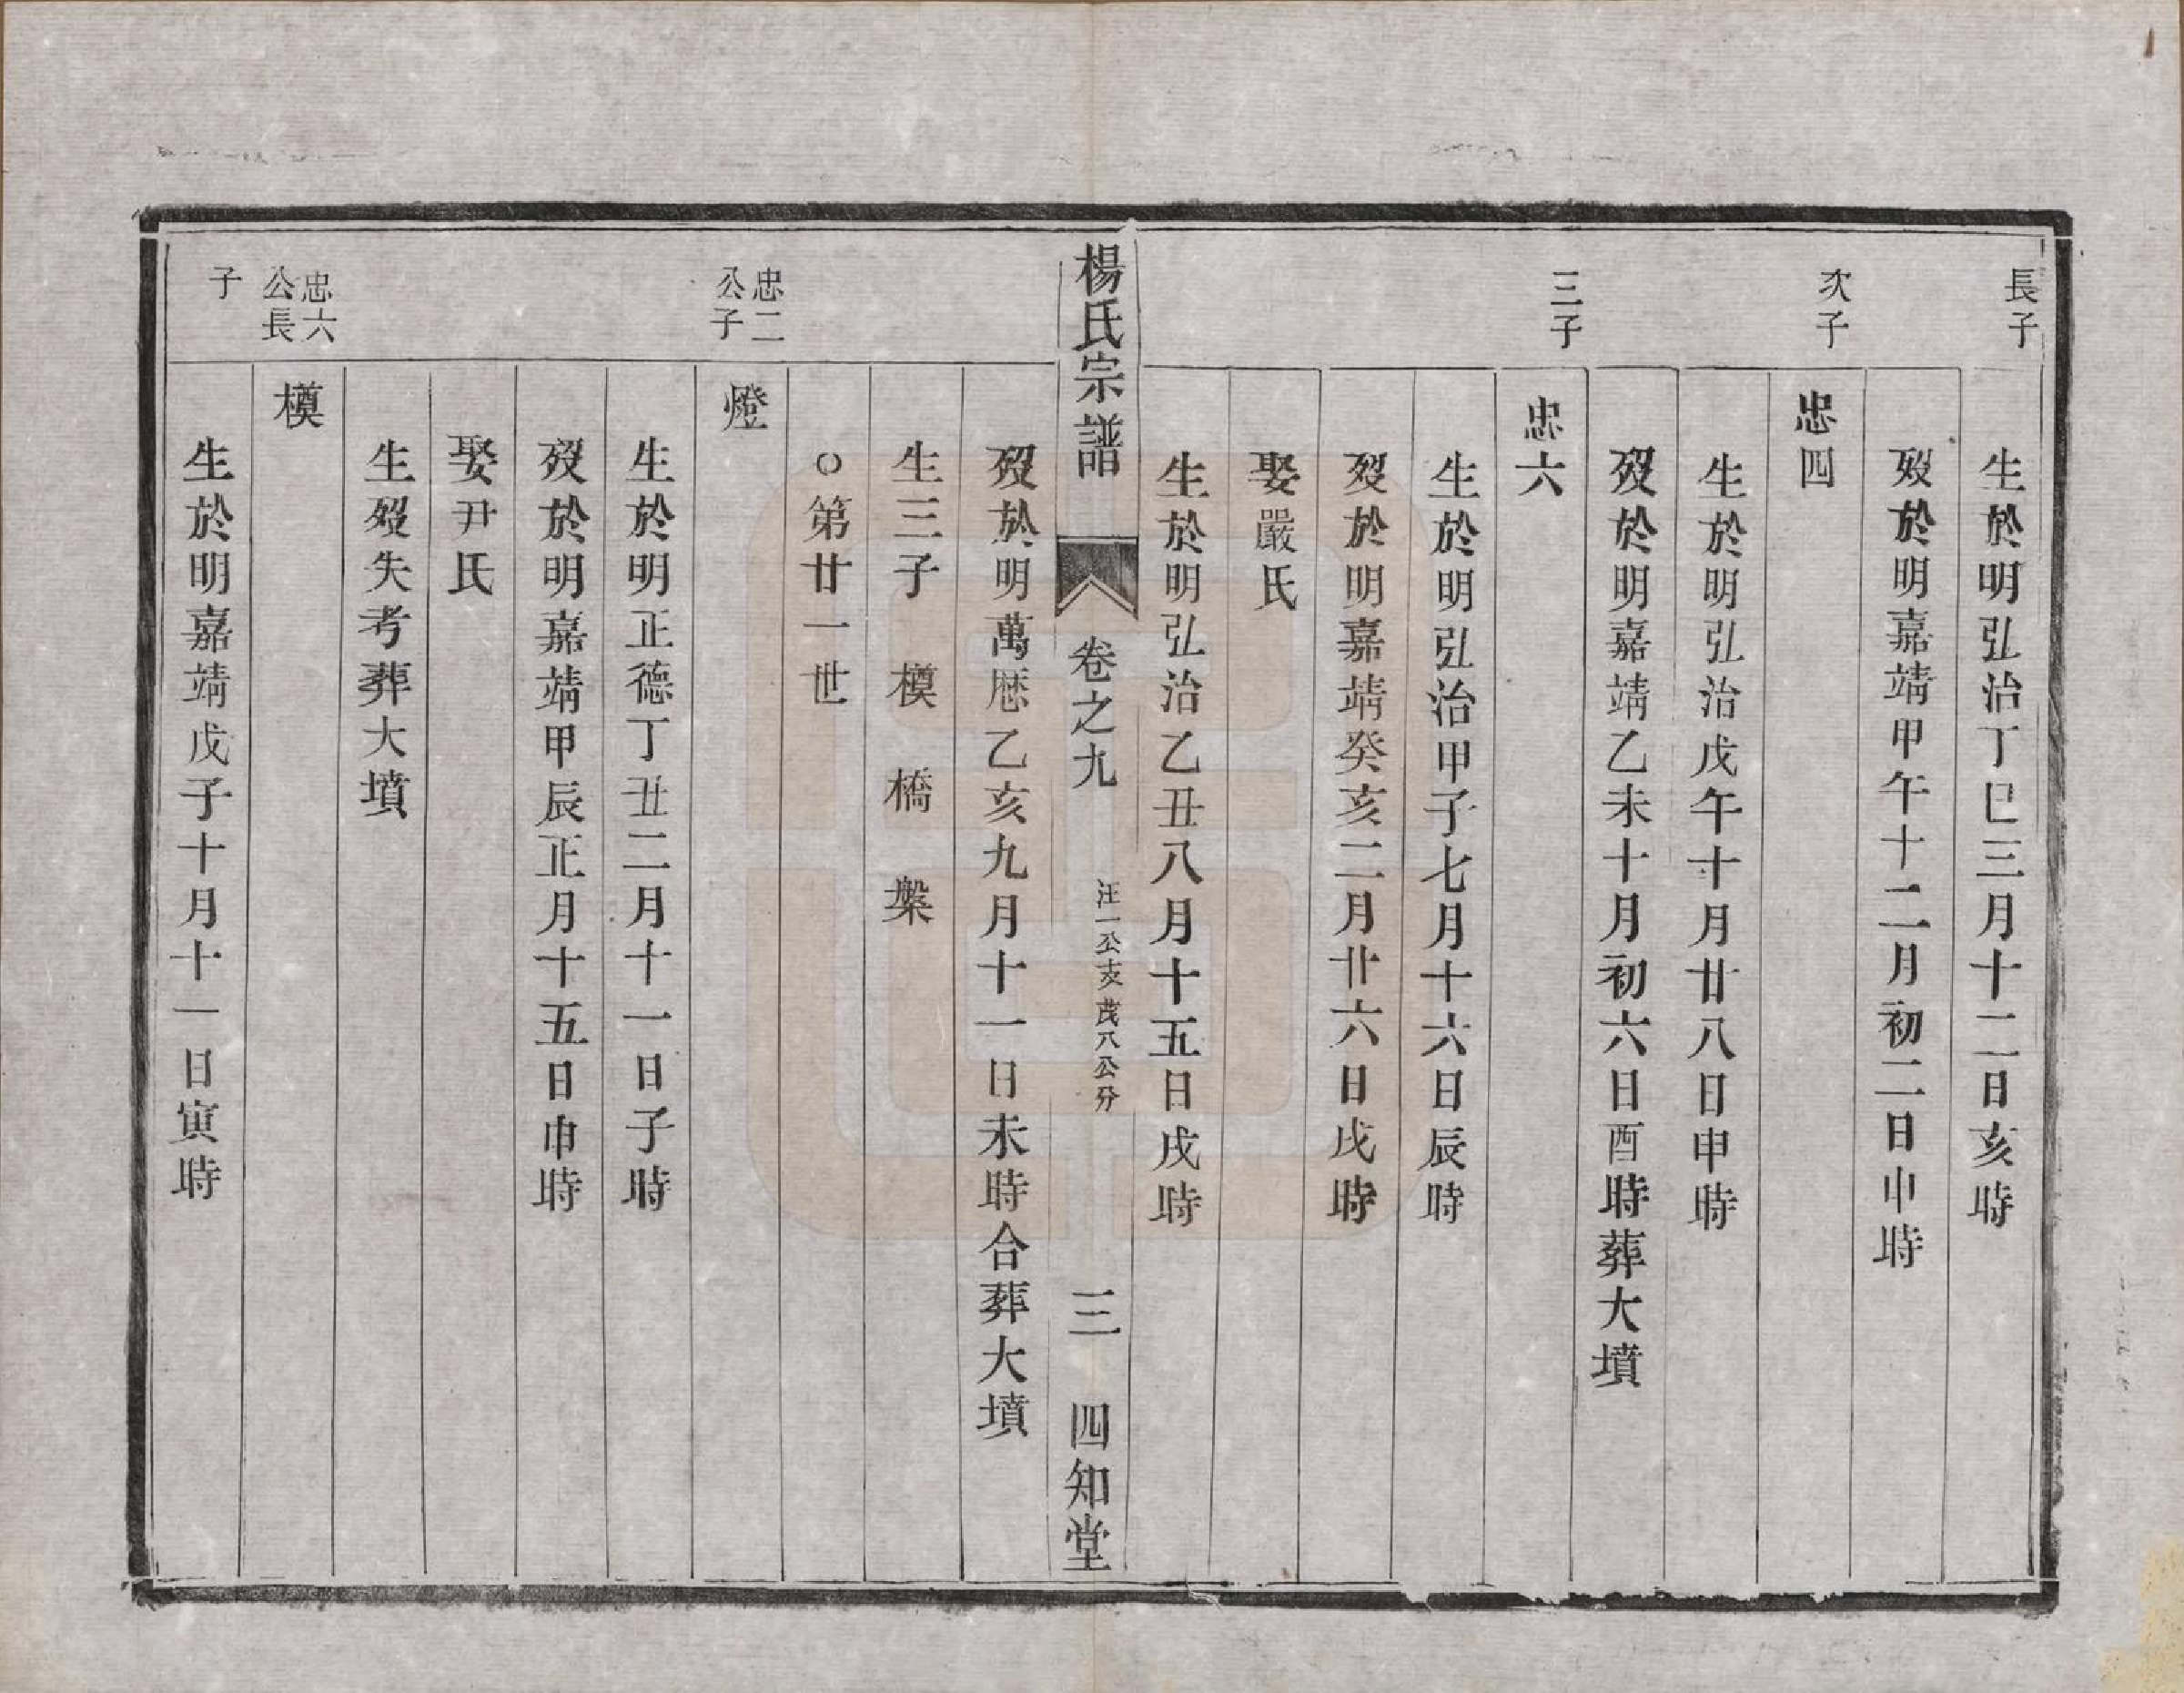 長子
生於明弘治丁巳三月十二日亥時
歿於明嘉靖甲午十二月初二日申時
次子
忠四
生於明弘治戊午十月廿八日申時
歿於明嘉靖乙未十月初六日酉時葬大墳
三子
忠六
生於明弘治甲子七月十六日辰時
歿於明嘉靖癸亥二月廿六日戌時
娶嚴氏
生於明弘治乙丑八月十五日戌時
楊氏宗譜
卷之九
汪一公支茂八公分
三
四知堂
歿於明萬歷乙亥九月十一日未時合葬大墳
生三子 模 橋 槃
○第廿一世
忠二公子
燈
生於明正德丁丑二月十一日子時
歿於明嘉靖甲辰正月十五日申時
娶尹氏
生歿失考葬大墳
忠六公長子
模
生於明嘉靖戊子十月十一日寅時